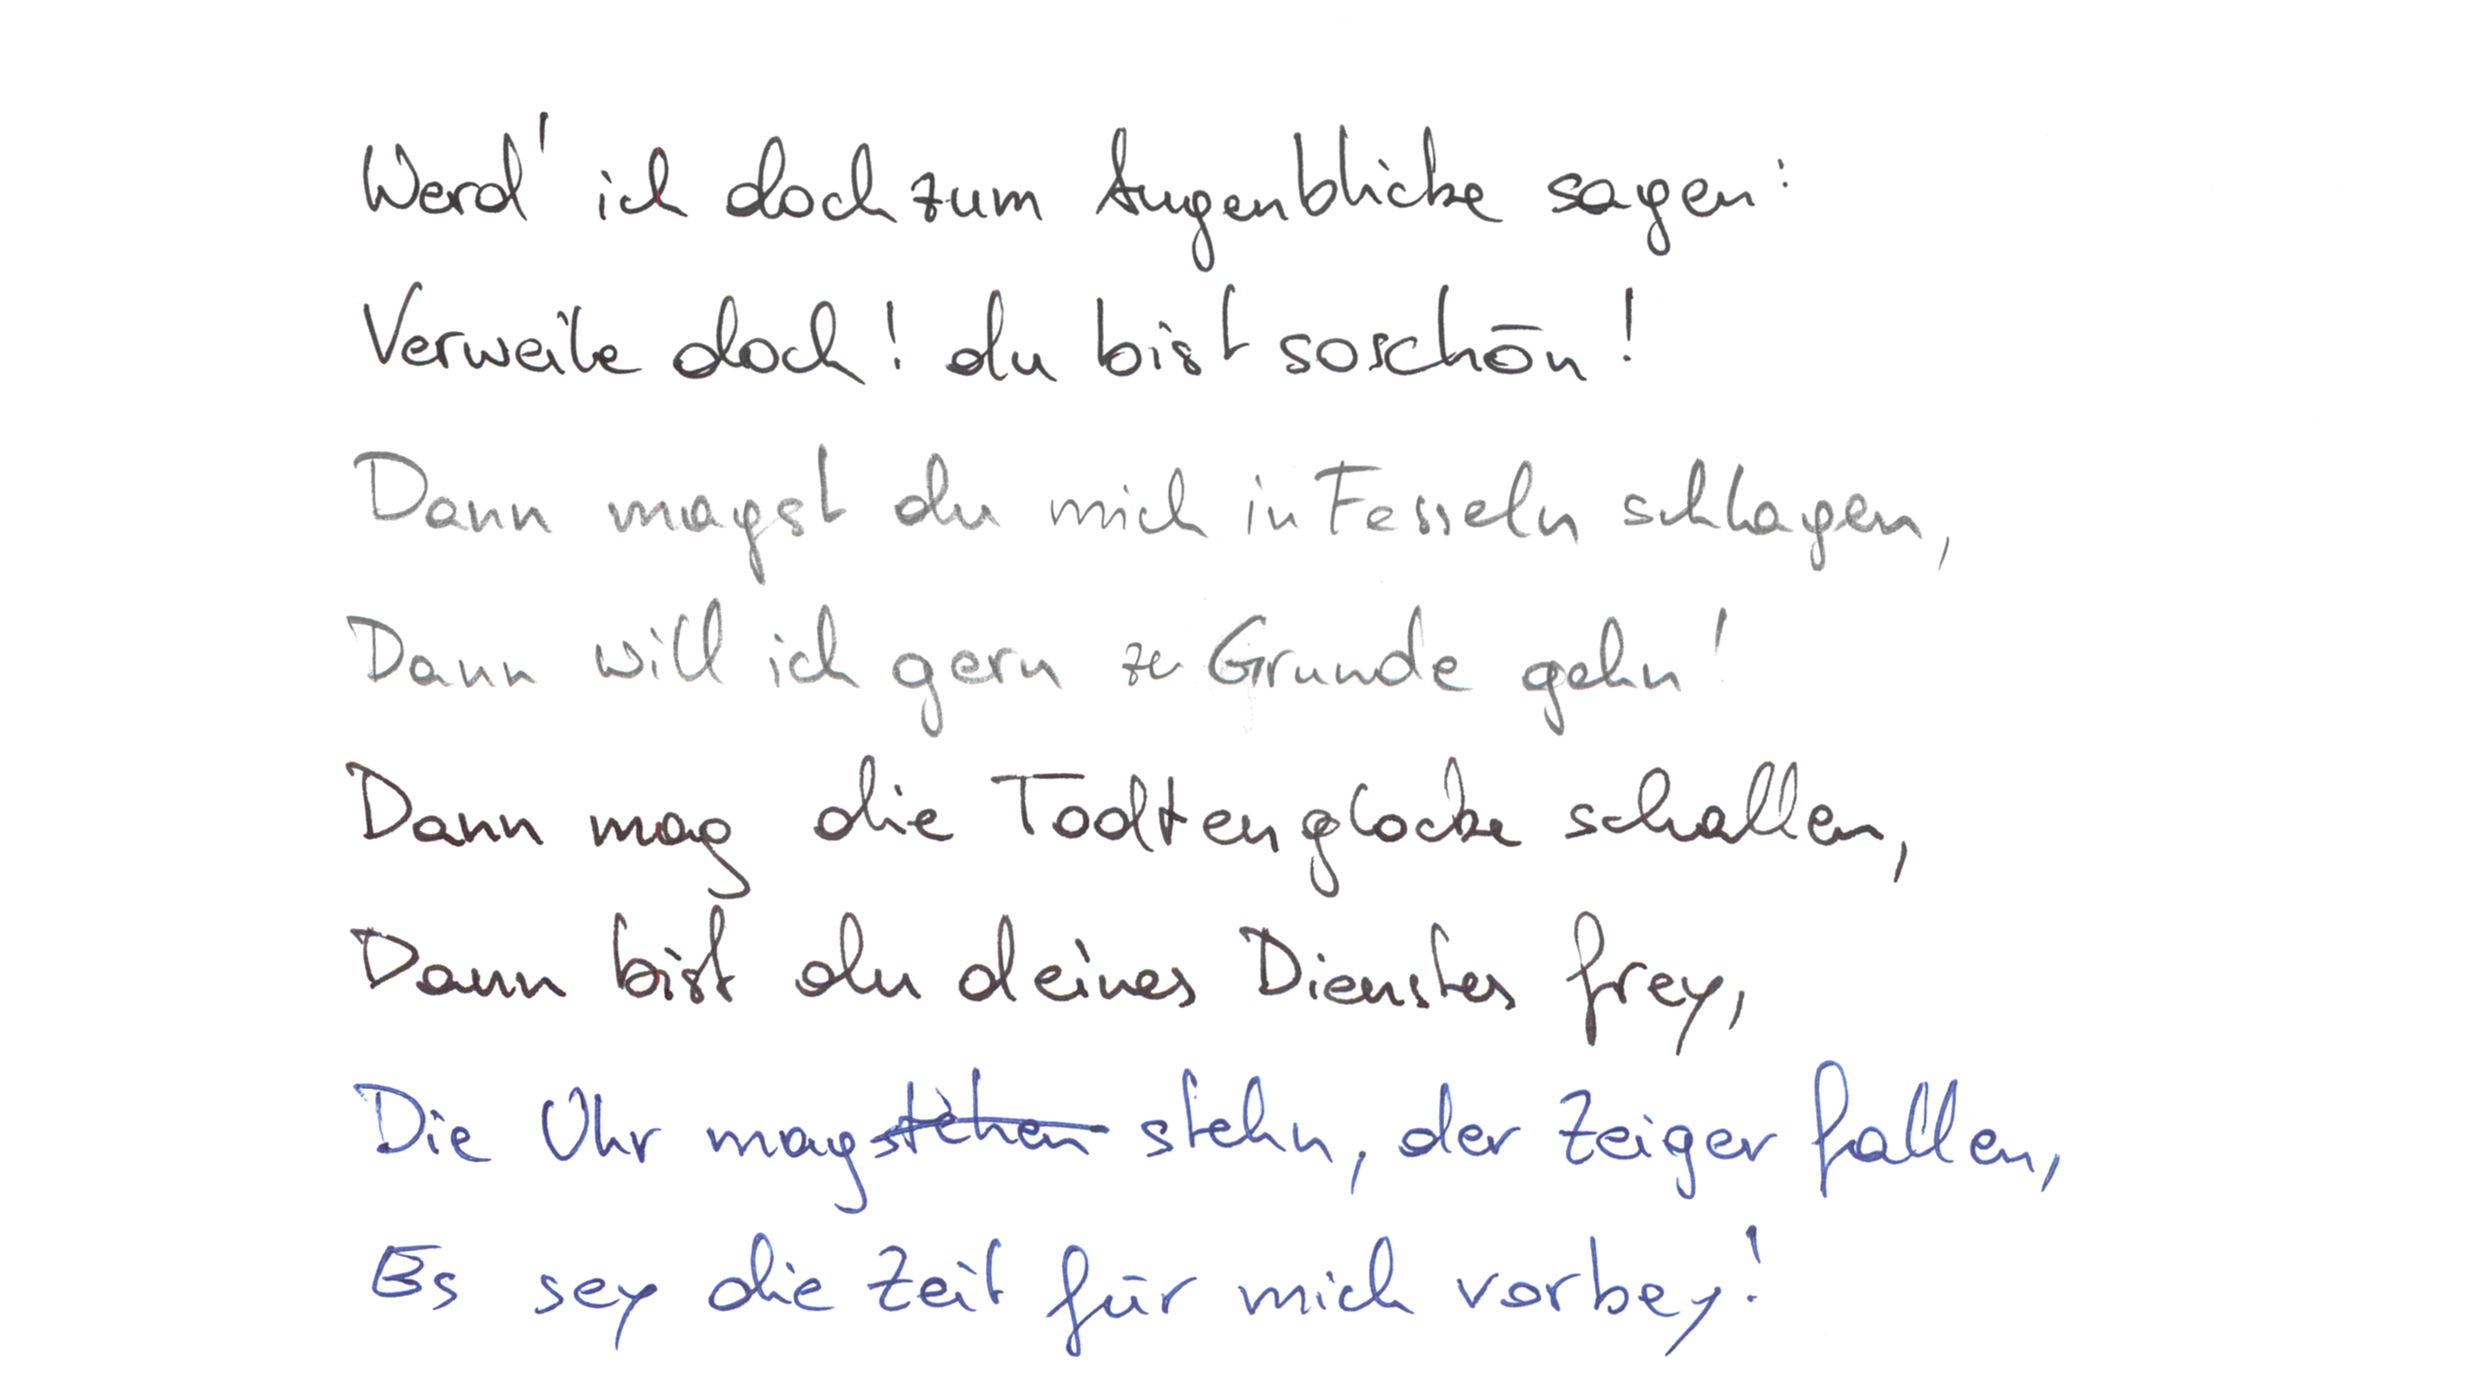 Werd' ich doch zum Augenblicke sagen:
Verweile doch! du bist so schön!
Dann magst du mich in Fesseln schlagen,
Dann will ich gern zu Grunde gehn!
Dann mag die Todtenglocke schallen,
Dann bist du deines Dienstes frey,
Die Uhr mag stehen stehn, der Zeiger fallen,
Es sey die Zeit für mich vorbey!